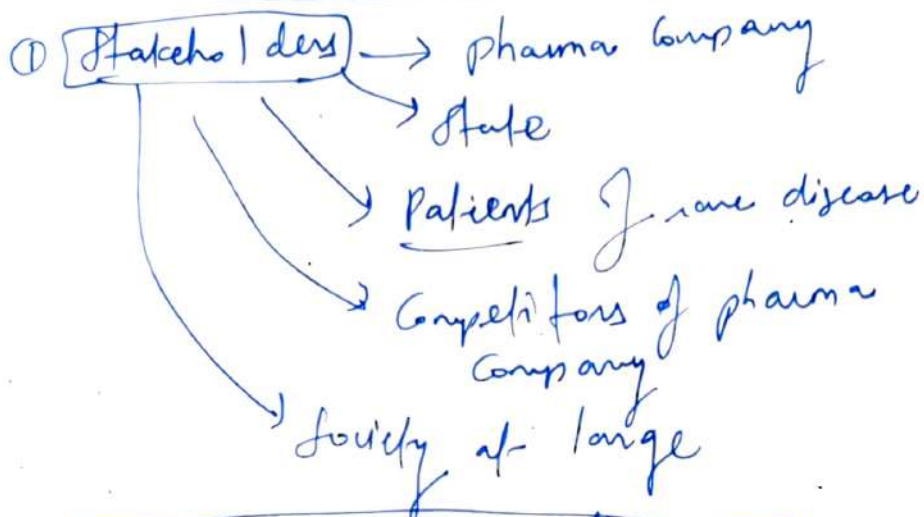 ① Stakeholders → pharma Company
State
Patients of rare disease
Competitors of pharma
Company
Society at large